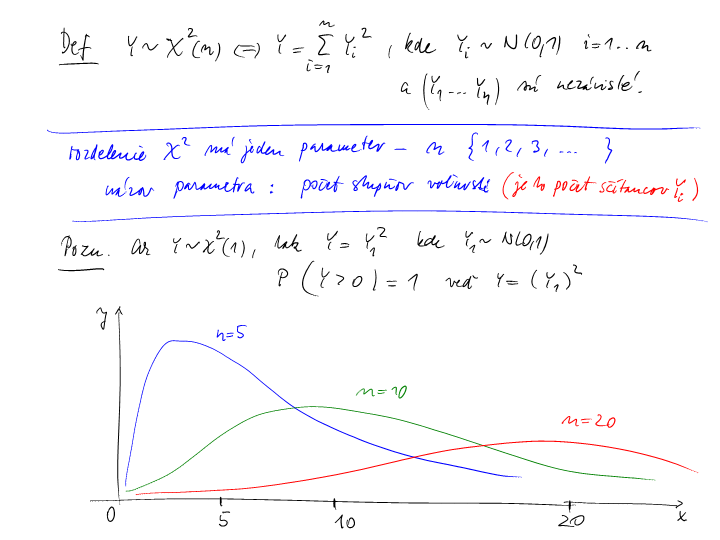 Def Y ~ χ²(n) ⟺ Y = ∑_{i=1}^{n} Y_i², kde Y_i ~ N(0,1) i=1..n
a (Y_1 ... Y_n) sú nezávislé.
rozdelenie χ² má jeden parameter – n {1, 2, 3, ... }
názov parametra : počet stupňov voľnosti (je to počet sčítancov Y_i)
Pozn. Ak Y ~ χ²(1), tak Y = Y_1² kde Y_1 ~ N(0,1)
P (Y > 0) = 1 veď Y = (Y_1)²
y
n=5
n=10
n=20
0 5 10 20 x